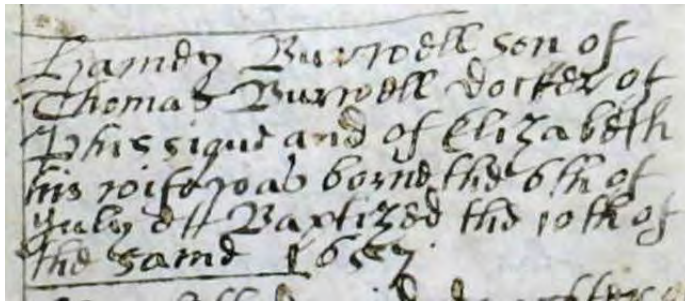 Hamey Burwell son of
Thomas Burwell docter of
Phissique and of Elizabeth
his wife was borne the 6th of
July & Baptized the 10th of
the same 1657.